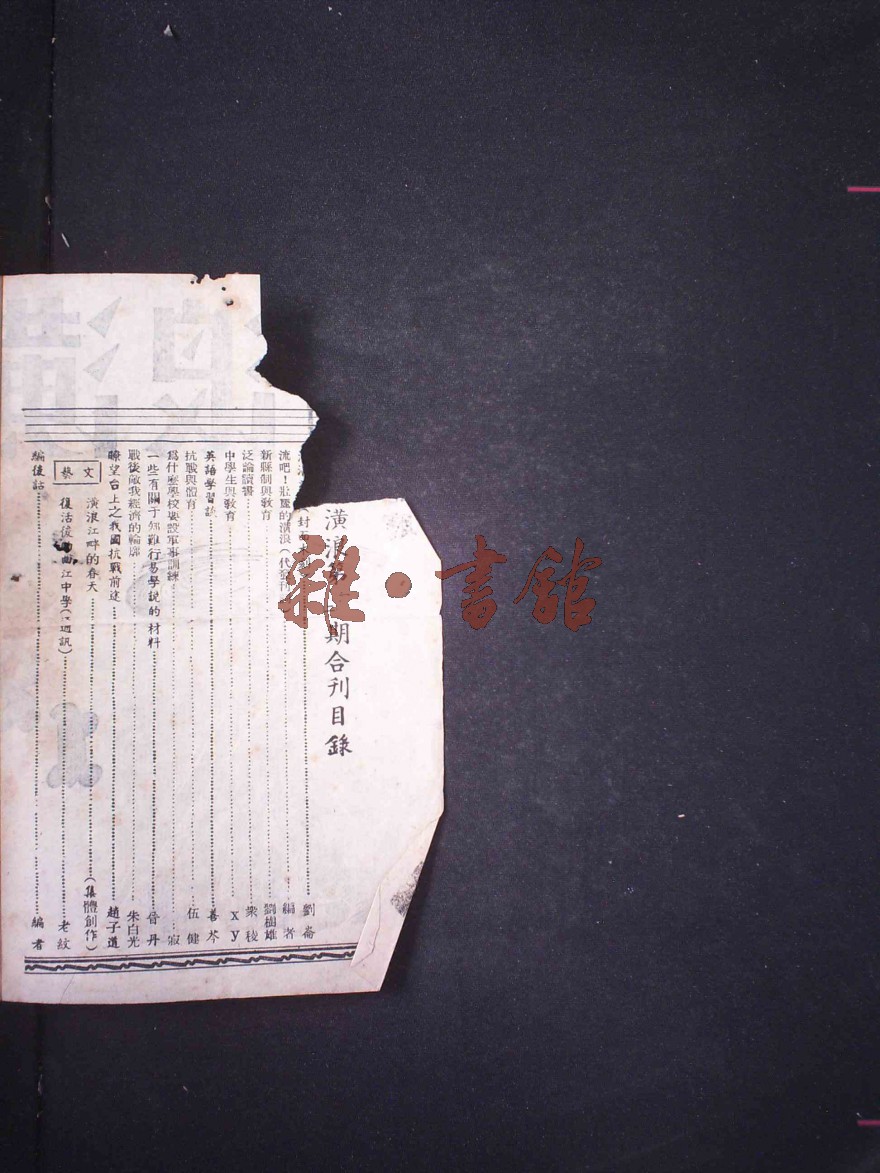 潢浪第期合刊目錄
封面 劉崙
流吧！壯麗的潢浪（代發刊 編者
新縣制與敎育 劉樹雄
泛論讀書 衆稜
中學生與敎育 XY
英語學習談 善岑
抗戰與體育 伍健
爲什麽學校要設軍事訓練 寂
一些有關于知難行易學說的材料 晉丹
戰後敵我經濟的輪廓 朱白光
瞭望台上之我國抗戰前途 趙子道
文藝
潢浪江畔的春天（集體創作）
復活後的曲江中學（通訊） 老紋
編後話 編者
雜·書館